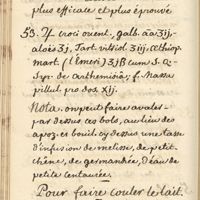 plus efficace et plus éprouvé
53. ℞ croci orient. galb. āā ʒij.
aloës ʒj, Tart. vitriol ʒiij, œthiop
mart (l'emeri) ʒjß cum S. Q.
Syr. de arthemisiâ; f. Massa
pillul. pro dos. xij.
Nota. on peut faire avaler
par dessus ces bols, au lieu des
apoz. et bouil. cy dessus une tasse
d'infusion de melisse, de petit
chêne, de germandrée, d'eau de
petite centaurée.
Pour faire couler le lait.